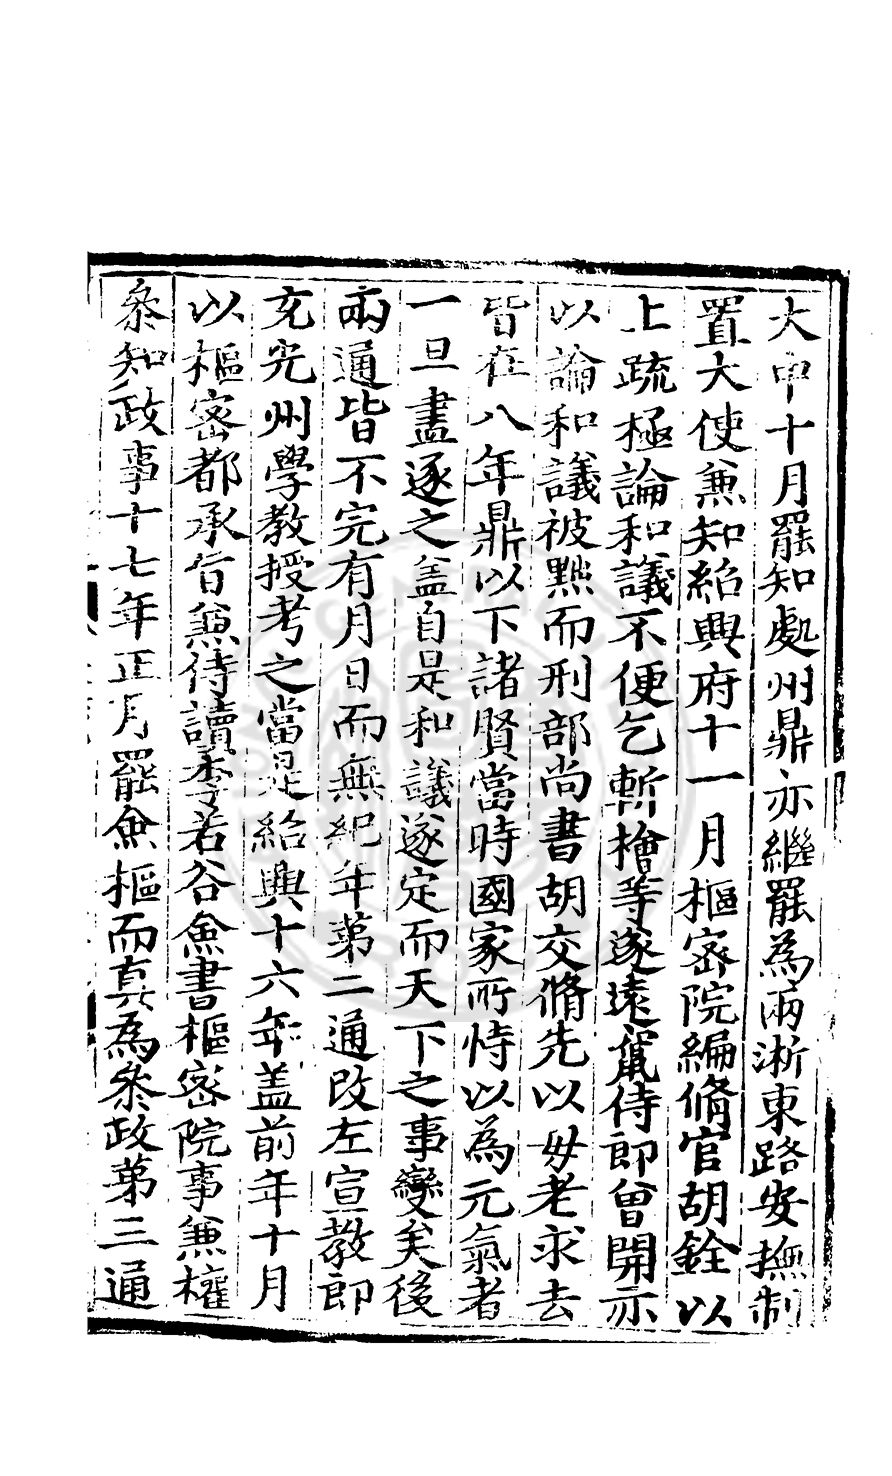 大中十月罷知處州鼎亦繼罷為兩淅東路安撫制
置大使兼知紹興府十一月樞密院編脩官胡銓以
上疏極論和議不便乞斬檜等遂遠竄侍郎曾開示
以論和議被黜而刑部尚書胡交脩先以毋老求去
皆在八年鼎以下諸賢當時國家所恃以為元氣者
一旦盡逐之盖自是和議遂定而天下之事變矣後
兩通皆不完有月日而無紀年第二通改左宣教郎
充兗州學教授考之當是紹興十六年盖前年十月
以樞密都承旨兼侍讀李若谷僉書樞密院事兼權
叅知政事十七年正月罷僉樞而真為叅政第三通